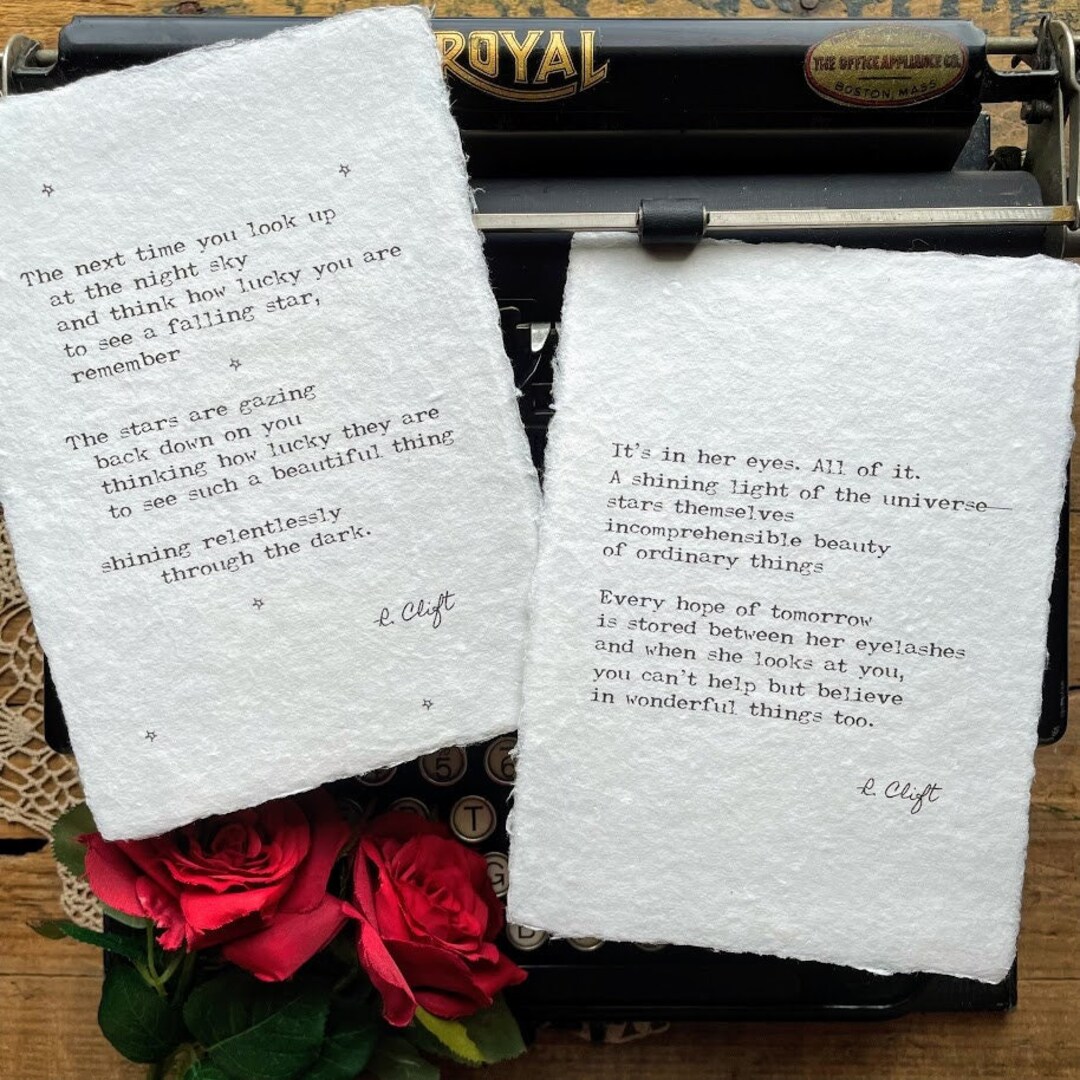 ROYAL
THE OFFICE APPLIANCE CO.
BOSTON, MASS
The next time you look up
at the night sky
and think how lucky you are
to see a falling star,
remember
The stars are gazing
back down on you
thinking how lucky they are
to see such a beautiful thing
shining relentlessly
through the dark.
R. Clift
It's in her eyes. All of it.
A shining light of the universe—
stars themselves
incomprehensible beauty
of ordinary things
Every hope of tomorrow
is stored between her eyelashes
and when she looks at you,
you can't help but believe
in wonderful things too.
R. Clift
5
6
T
G
B